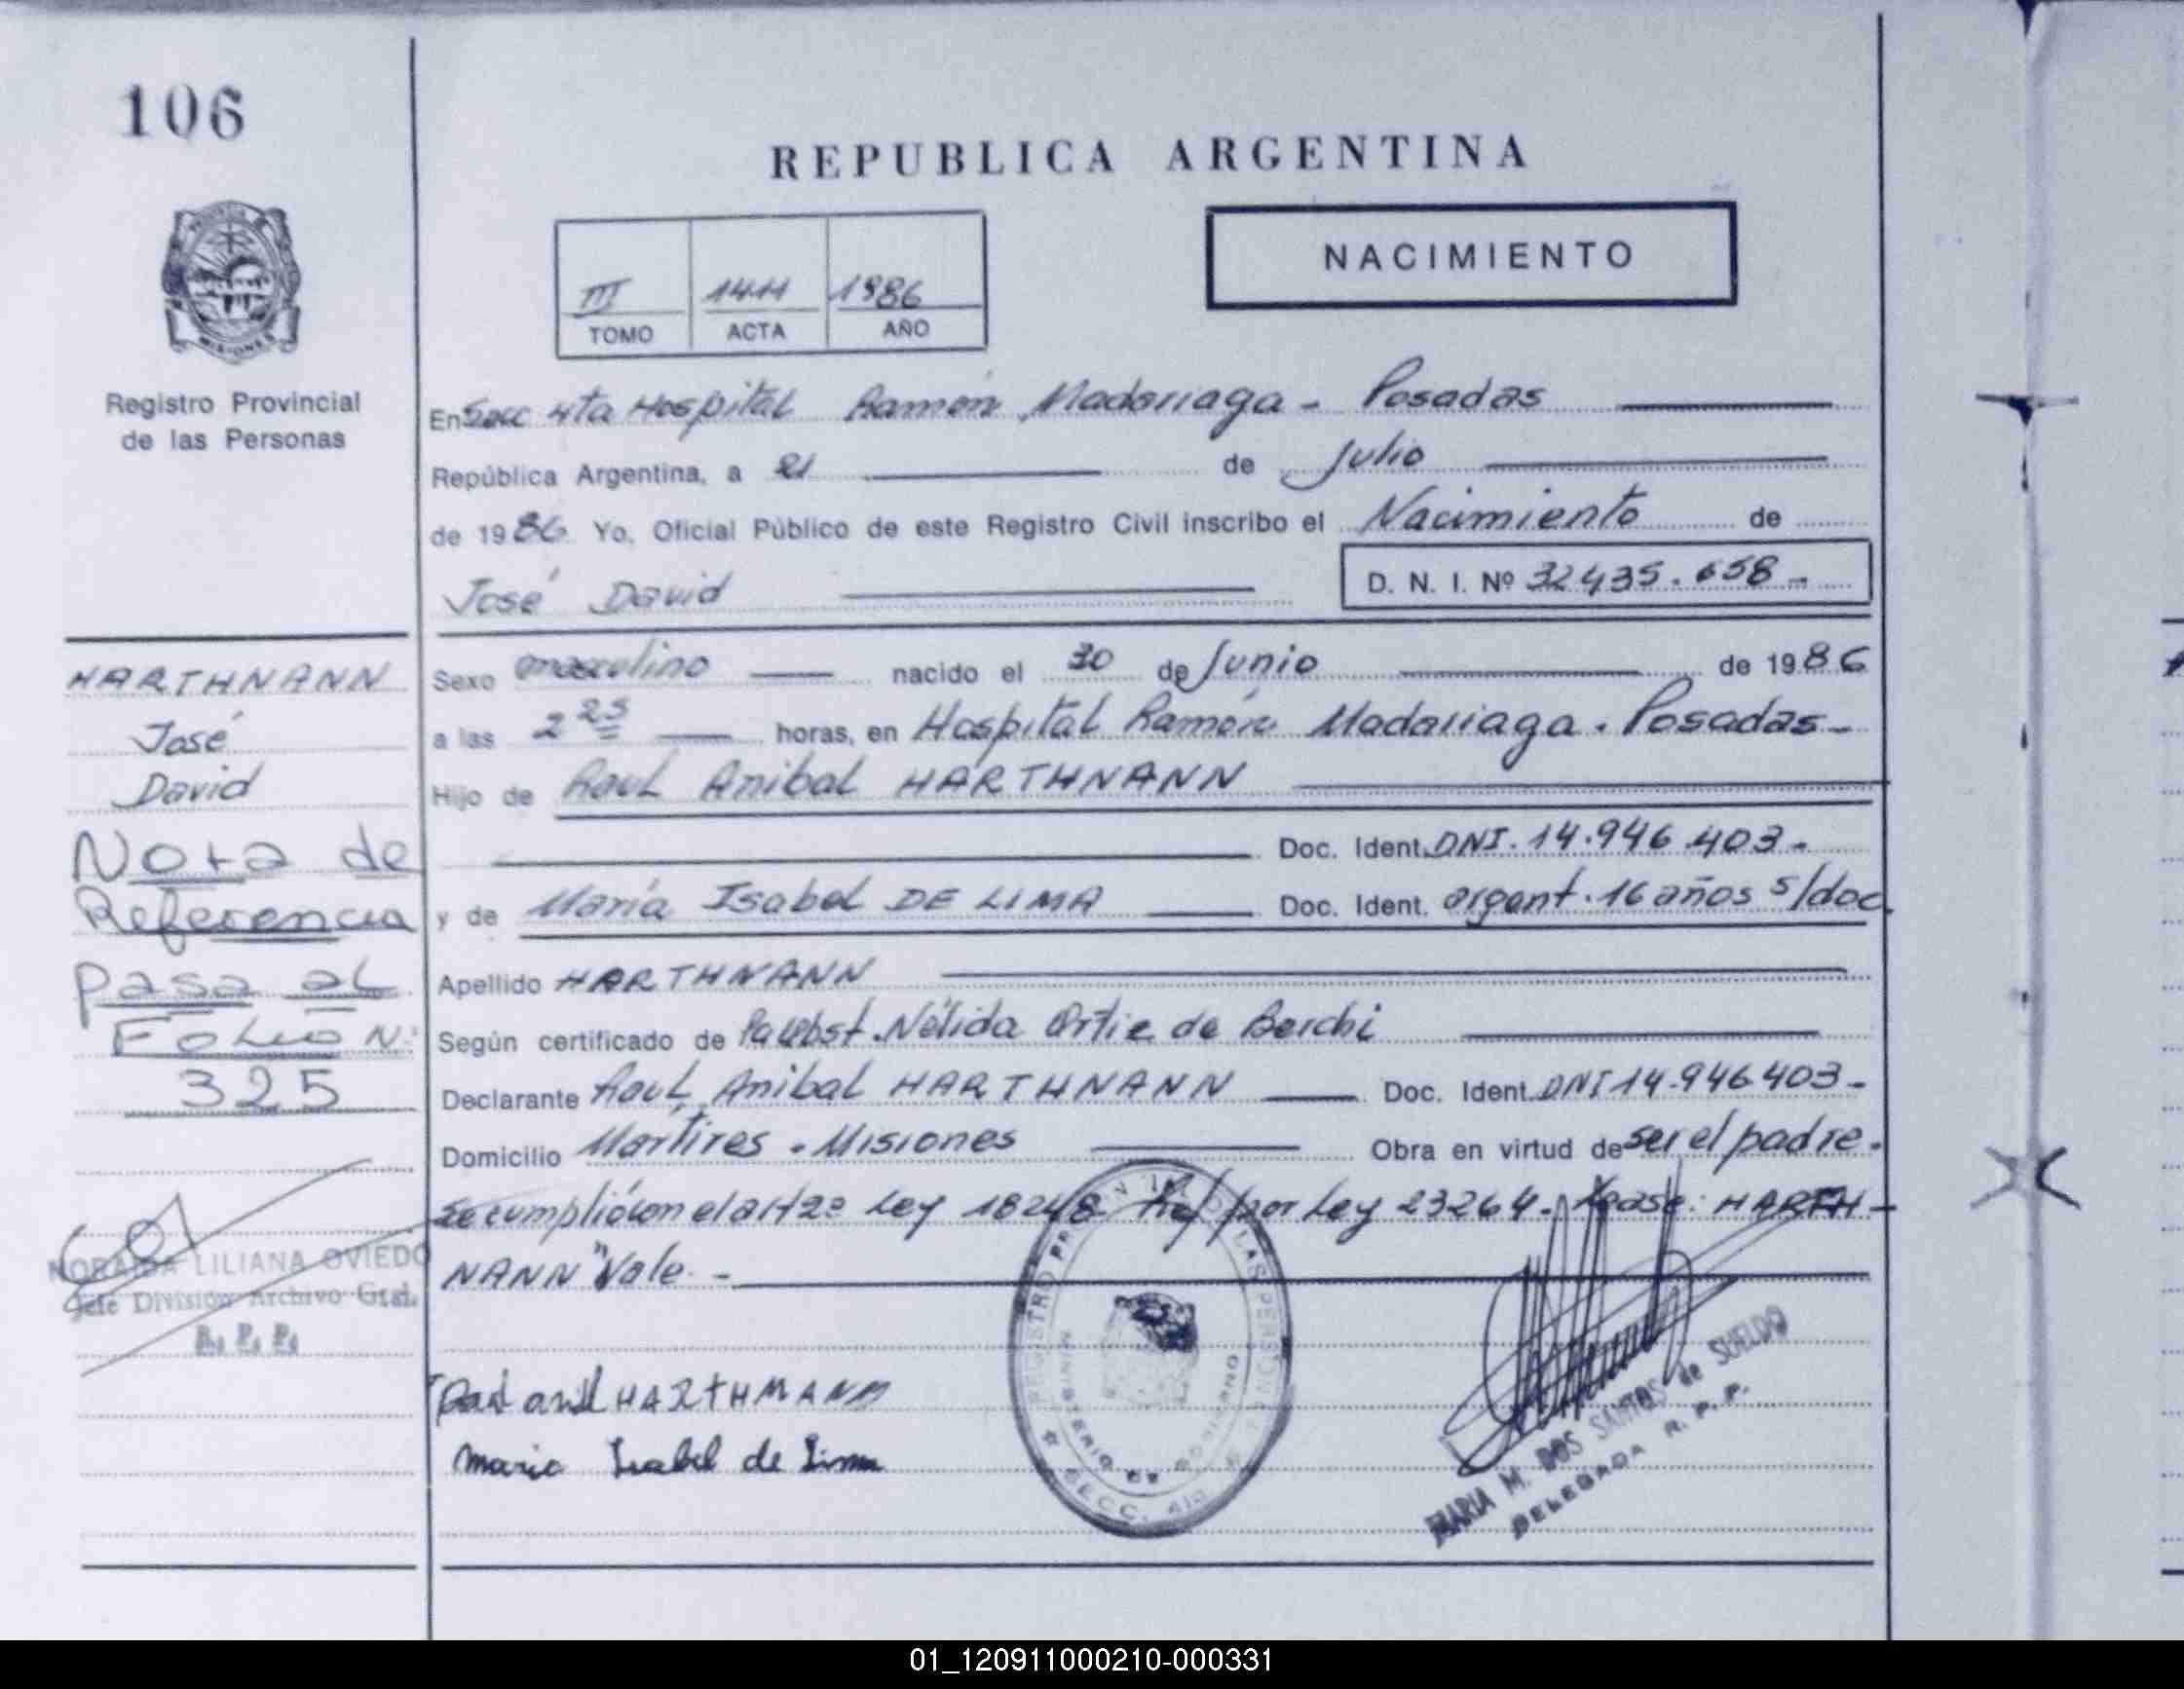 106
REPUBLICA ARGENTINA
NACIMIENTO
III 1411 1986
TOMO ACTA AÑO
MISIONES
Registro Provincial
de las Personas
En Secc 4ta Hospital Ramón Madariaga - Posadas
República Argentina, a 21 de Julio
de 1986. Yo, Oficial Público de este Registro Civil inscribo el Nacimiento de
José David
D. N. I. Nº 32435.658 -
HARTHNANN
José
David
Nota de
Referencia
pasa al
Folio N:
325
NORAIDA LILIANA OVIEDO
Jefe División Archivo Gral.
R. P. P.
Sexo masculino nacido el 30 de Junio de 1986
a las 2 25 horas, en Hospital Ramón Madariaga. Posadas -
Hijo de Raul Anibal HARTHNANN
Doc. Ident. DNI. 14.946.403 -
y de María Isabel DE LIMA Doc. Ident. argent. 16 años s/doc.
Apellido HARTHNANN
Según certificado de Nélida Ortiz de Berchi
Declarante Raul Anibal HARTHNANN Doc. Ident. DNI 14.946403 -
Domicilio Martires - Misiones Obra en virtud de ser el padre.
se cumplió con el art 2º Ley 18248 Ref por Ley 23264. Lease: HARTH-
NANN "Vale. -
HARTHMANN
Maria Isabel de Lima
REGISTRO PROVINCIAL DE LAS PERSONAS
MINISTERIO DE GOBIERNO
SECC. 4ta
MARIA M. DOS SANTOS de SUELDO
DELEGADA R. P. P.
01_120911000210-000331